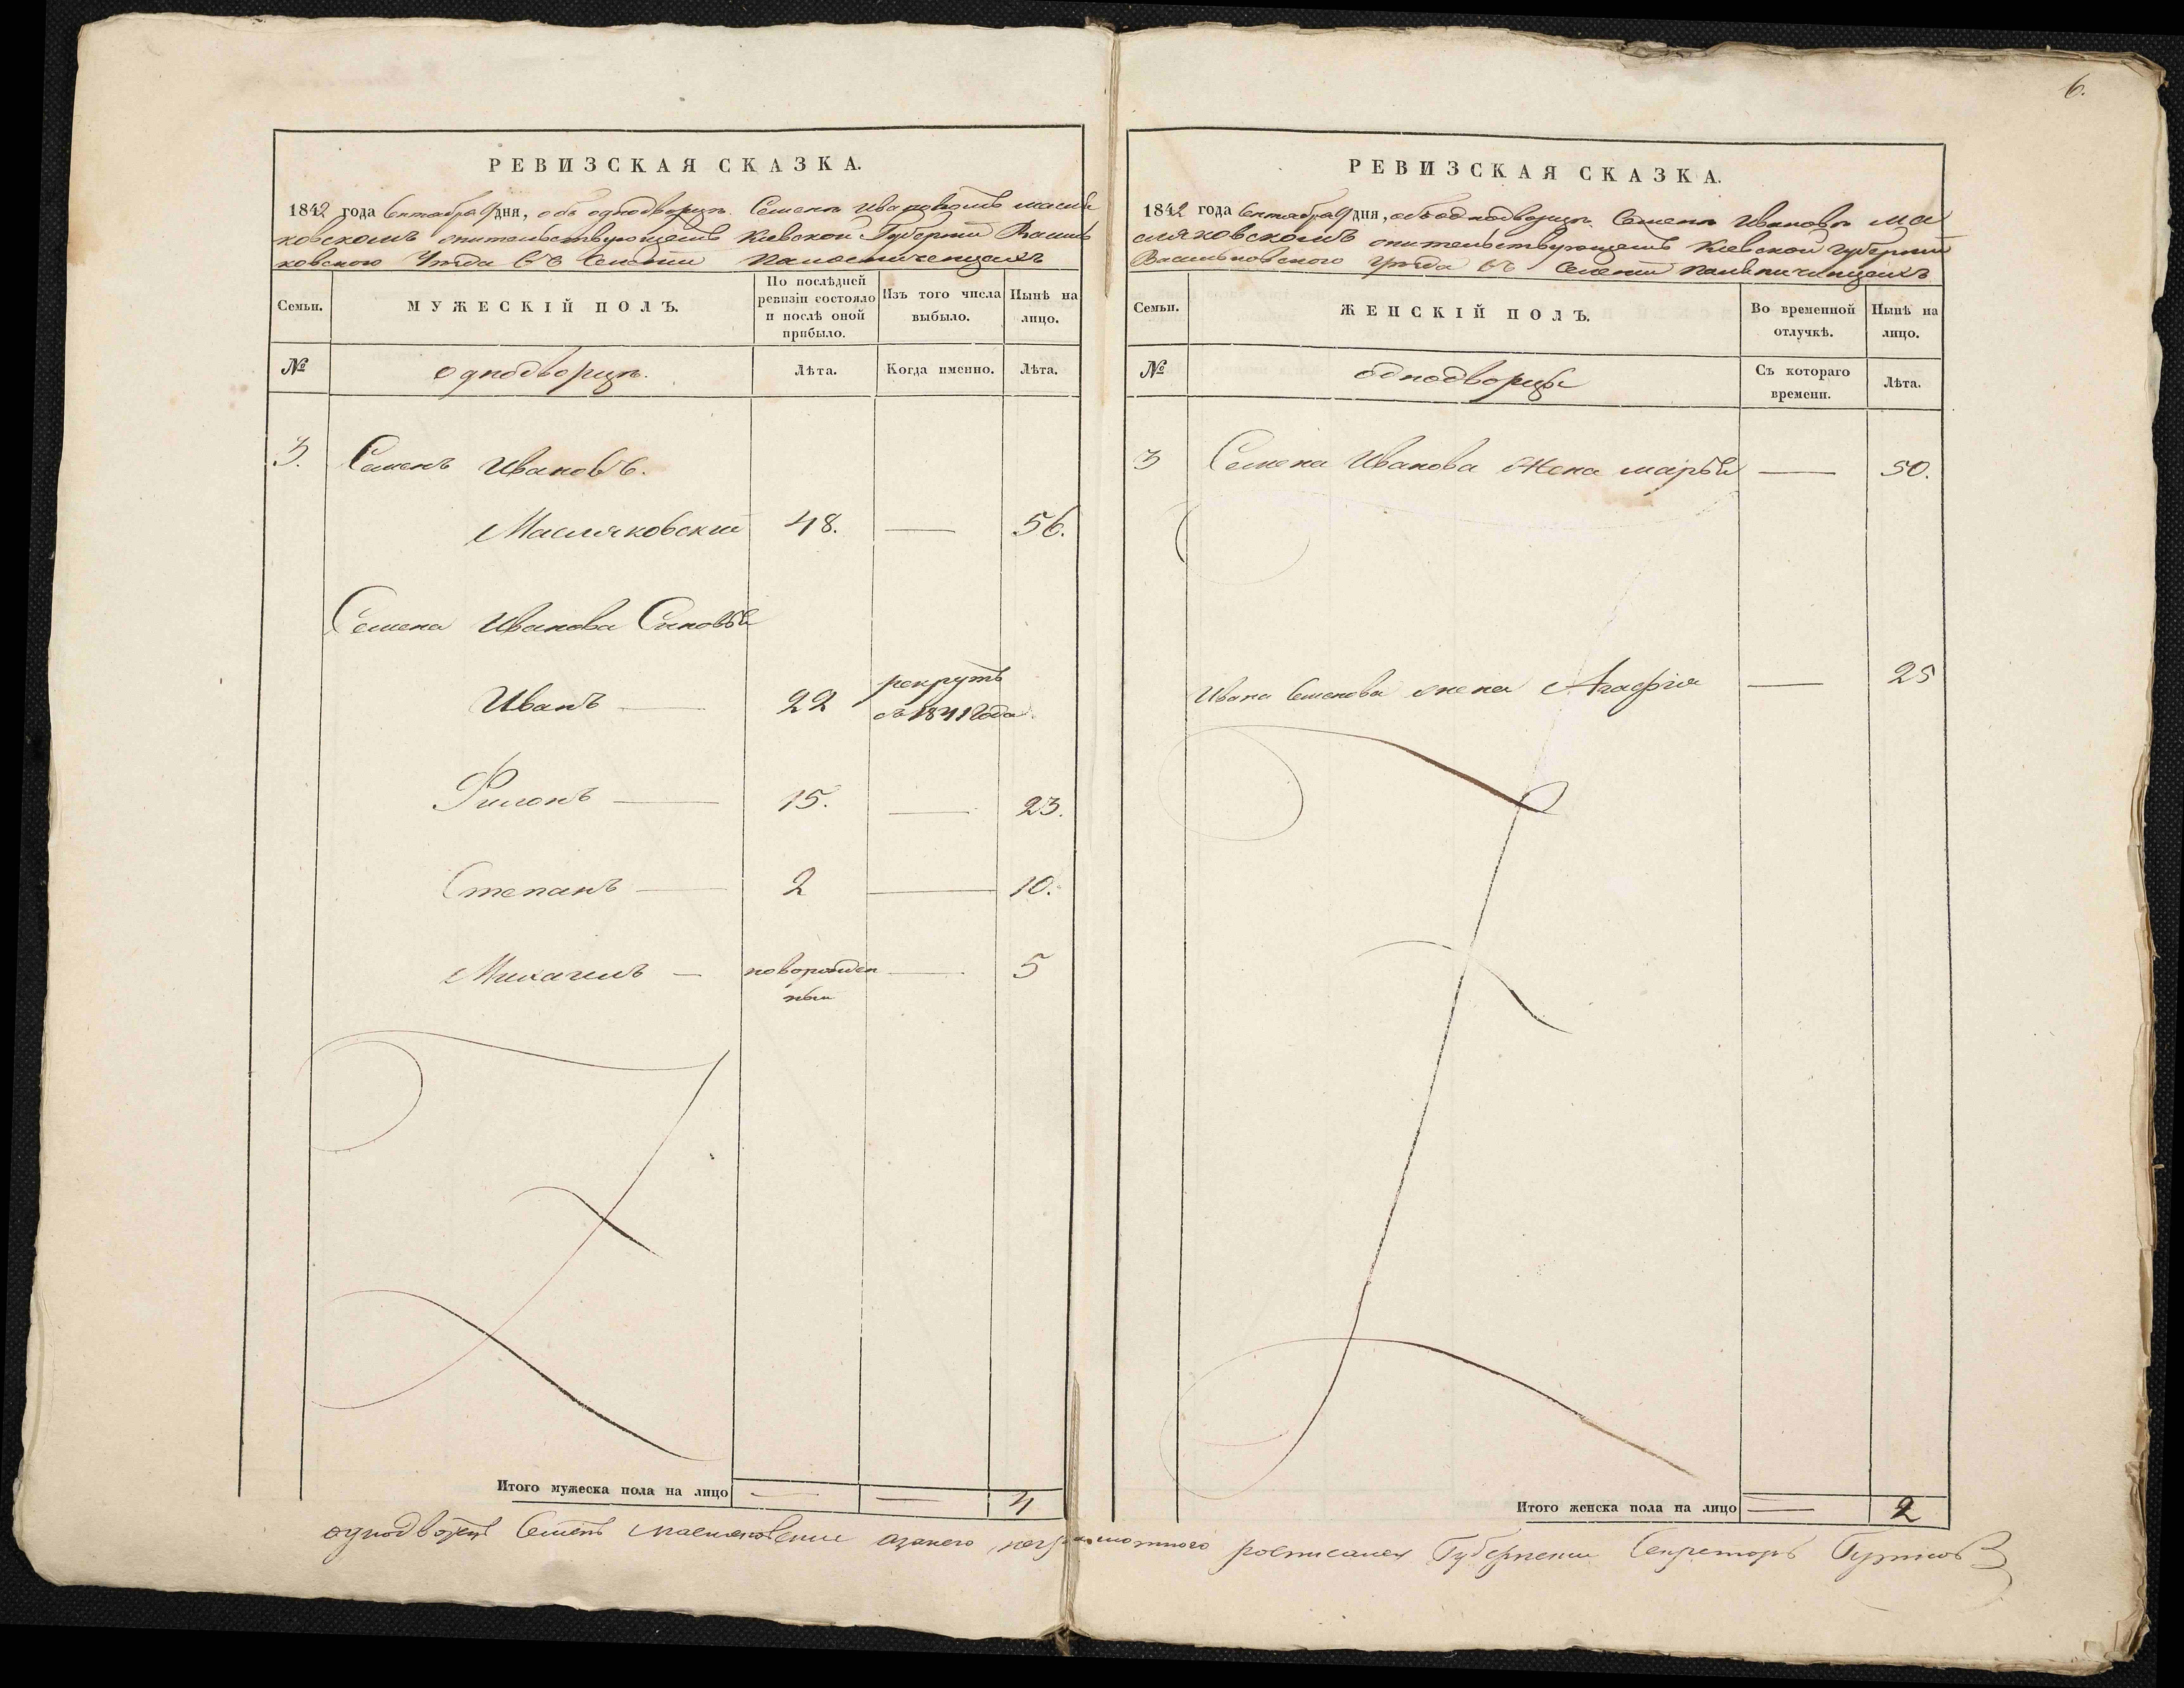 6.
РЕВИЗСКАЯ СКАЗКА.
1842 года Сентября 9 дня, объ однодворцѣ Семенѣ Ивановомъ Масля
ковскомъ жительствующемъ Кіевской Губерніи Василь
ковского Уѣзда въ Селеніи
Семьи.
МУЖЕСКІЙ ПОЛЪ.
По послѣдней ревизіи состояло и послѣ оной прибыло.
Изъ того числа выбыло.
Нынѣ на лицо.
№
однодворцѣ.
Лѣта.
Когда именно.
Лѣта.
3. Семенъ Ивановъ.
Масляковскій 48. — 56.
Семена Иванова Сыновья
Иванъ — 22 рекрутъ
съ 1841 года.
Филонъ — 15. — 23.
Степанъ — 2 — 10.
Михаилъ — новорожден — 5
ный
Итого мужеска пола на лицо — — 4
РЕВИЗСКАЯ СКАЗКА.
1842 года Сентября 9 дня, объ однодворцѣ Семенѣ Ивановѣ Ма
сляковскомъ жительствующемъ Кіевской губерніи
Васильковского уѣзда въ Селеніи
Семьи.
ЖЕНСКІЙ ПОЛЪ.
Во временной отлучкѣ.
Нынѣ на лицо.
№
однодворцы
Съ котораго времени.
Лѣта.
3 Семена Иванова жена марья — 50.
Ивана Семенова жена Агафія — 25
Итого женска пола на лицо — 2
однодворецъ Семенъ Масляковскій азанего неграмотного росписался Губернскій Секретарь